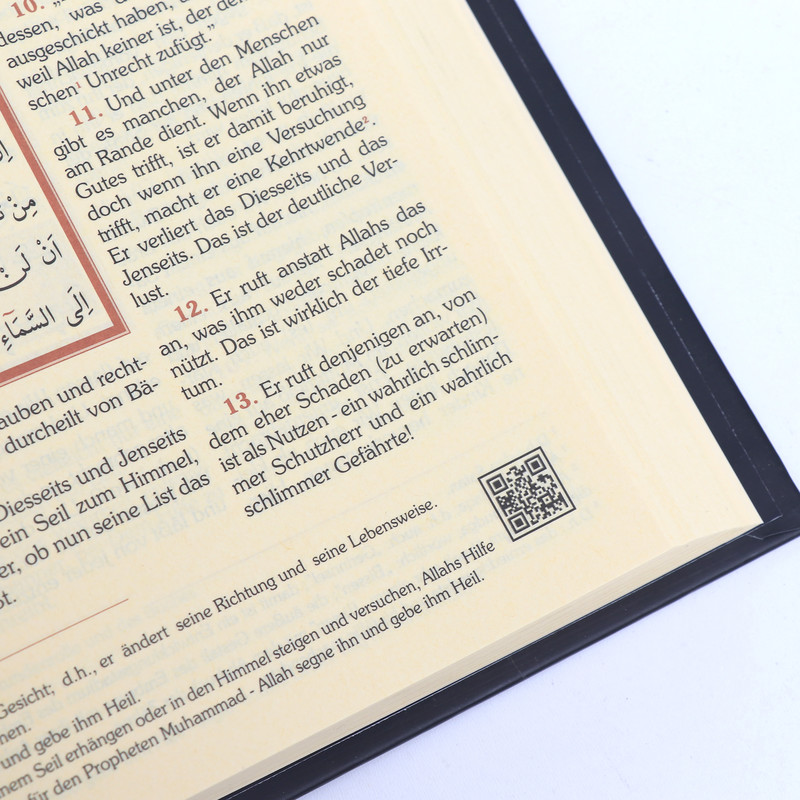 10. „
dessen, was
ausgeschickt haben,
weil Allah keiner ist, der den
schen¹ Unrecht zufügt.”
11. Und unter den Menschen
gibt es manchen, der Allah nur
am Rande dient. Wenn ihn etwas
Gutes trifft, ist er damit beruhigt,
doch wenn ihn eine Versuchung
trifft, macht er eine Kehrtwende².
Er verliert das Diesseits und das
Jenseits. Das ist der deutliche Ver-
lust.
12. Er ruft anstatt Allahs das
an, was ihm weder schadet noch
nützt. Das ist wirklich der tiefe Irr-
tum.
13. Er ruft denjenigen an, von
dem eher Schaden (zu erwarten)
ist als Nutzen - ein wahrlich schlim-
mer Schutzherr und ein wahrlich
schlimmer Gefährte!
مِنْ
اَنْ لَنْ
اِلَى السَّمَاءِ
auben und recht-
durcheilt von Bä-
Diesseits und Jenseits
ein Seil zum Himmel,
er, ob nun seine List das
Gesicht; d.h., er ändert seine Richtung und seine Lebensweise.
und gebe ihm Heil.
nem Seil erhängen oder in den Himmel steigen und versuchen, Allahs Hilfe
für den Propheten Muhammad - Allah segne ihn und gebe ihm Heil.